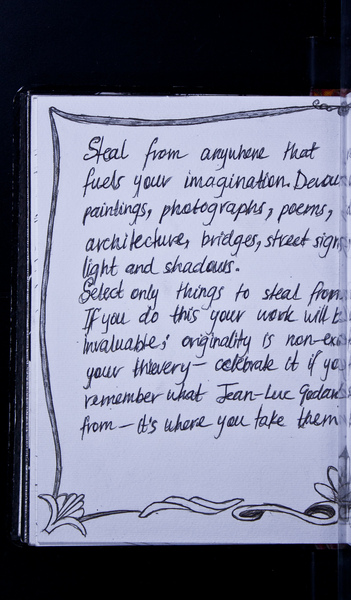 Steal from anywhere that
fuels your imagination. Devour
paintings, photographs, poems,
architecture, bridges, street signs
light and shadows.
Select only things to steal from
If you do this your work will b
invaluable; originality is non-exi
your thievery - celebrate it if yo
remember what Jean-Luc Godard
from - it's where you take them